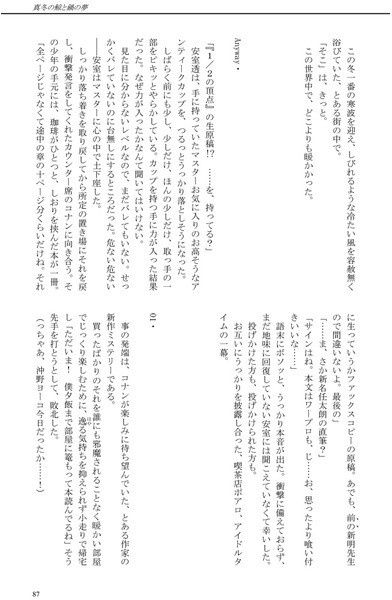 真冬の鯨と鏑の夢
この冬一番の寒波を迎え、しびれるような冷たい風を容赦無く
浴びていた、とある街の中で。
「そこ」は、きっと。
この世界中で、どこよりも暖かかった。
Anyway・
『1／2の頂点』の生原稿!? ……を、持ってる？」
安室透は、手に持っていたマスターお気に入りのお高そうなア
ンティークカップを、つるっとうっかり落としそうになった。
しばらく前にも少し、少しだけ、ほんの少しだけ、取っ手の一
部をピキッとやらかしている。カップを持つ手に力が入った結果
だった。なぜ力が入ったかなんて聞いてはいけない。
見た目に分からないレベルなので、まだバレてもいない。せっ
かくバレていないのに台無しにするところだった。危ない危ない
――安室はマスターに心の中で土下座した。
しっかり落ち着きを取り戻してから所定の置き場にそれを戻
し、衝撃発言をしてくれたカウンター席のコナンに向き合う。そ
の少年の手元には、珈琲がひとつと、しおりを挟んだ本が一冊。
「全ページじゃなくて途中の章の十ページ分くらいだけね。それ
に生っていうかファックスコピーの原稿。あでも、前の新明先生
ので間違いないよ。最後の」
「……ま、まさか新名任太朗の直筆？」
「サインはね。本文はワープロも、じ……お、思ったより喰い付
きいいな……」
語末にボソッと、うっかり本音が出た。衝撃に備えておらず、
まだ地味に回復していない安室には聞こえていなくて幸いした。
投げかけた方も、投げかけられた方も。
お互いにうっかりを披露し合った、喫茶店ポアロ、アイドルタ
イムの一幕。
01・
事の発端は、コナンが楽しみに待ち望んでいた、とある作家の
新作ミステリーである。
買ったばかりのそれを誰にも邪魔されることなく暖かい部屋
でじっくり楽しむために、逸る気持ちを抑えられず小走りで帰宅
し「ただいま！ 僕夕飯まで部屋に篭もって本読んでるね」そう
先手を打とうとして、敗北した。
（っちゃあ、沖野ヨーコ今日だったか……！）
87